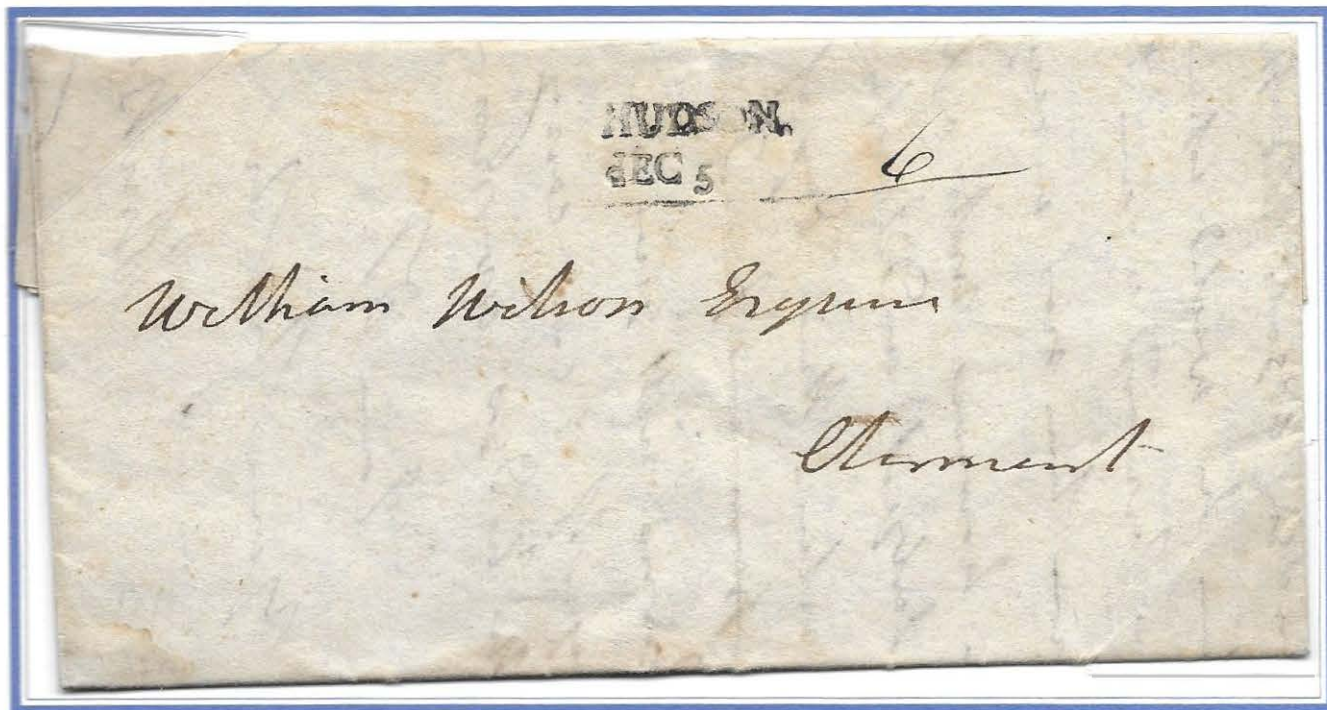 HUDSON.
dEC 5 6
William Wilson Esquire
Clermont